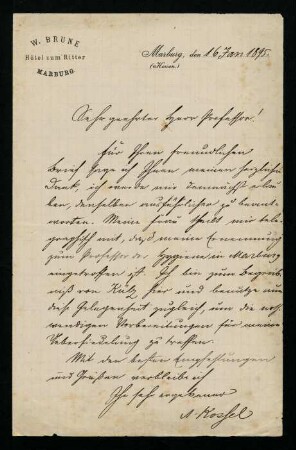 W. BRUNE
Hôtel zum Ritter
MARBURG
Marburg, den 16 Jan 1895.
(Hessen.)
Sehr geehrter Herr Professor!
Für Ihren freundlichen
Brief sage ich Ihnen meinen herzlichen
Dank, ich werde mir demnächst erlau-
ben, denselben ausführlicher zu beant-
worten. Meine Frau theilt mir tele-
graphisch mit, daß meine Ernennung
zum Professor der Hygiene in Marburg
eingetroffen ist. Ich bin zum Begräb-
niß von Külz hier und benütze auf
diese Gelegenheit zugleich, um die noth-
wendigen Vorbereitungen für meine
Uebersiedelung zu treffen.
Mit den besten Empfehlungen
und Grüßen verbleibe ich
Ihr sehr ergebener
A Kossel